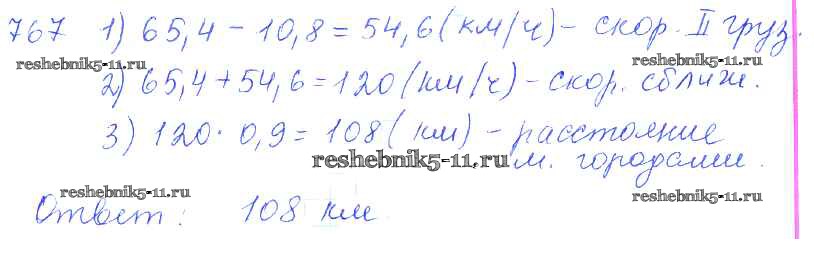 767 1) 65,4 - 10,8 = 54,6 (км/ч) - скор. II груз.
reshebnik5-11.ru reshebnik5-11.ru
2) 65,4 + 54,6 = 120 (км/ч) - скор. сближ.
3) 120 · 0,9 = 108 ( км) - расстояние
reshebnik5-11.ru м. городами.
reshebnik5-11.ru reshebnik5-11.ru
Ответ: 108 км